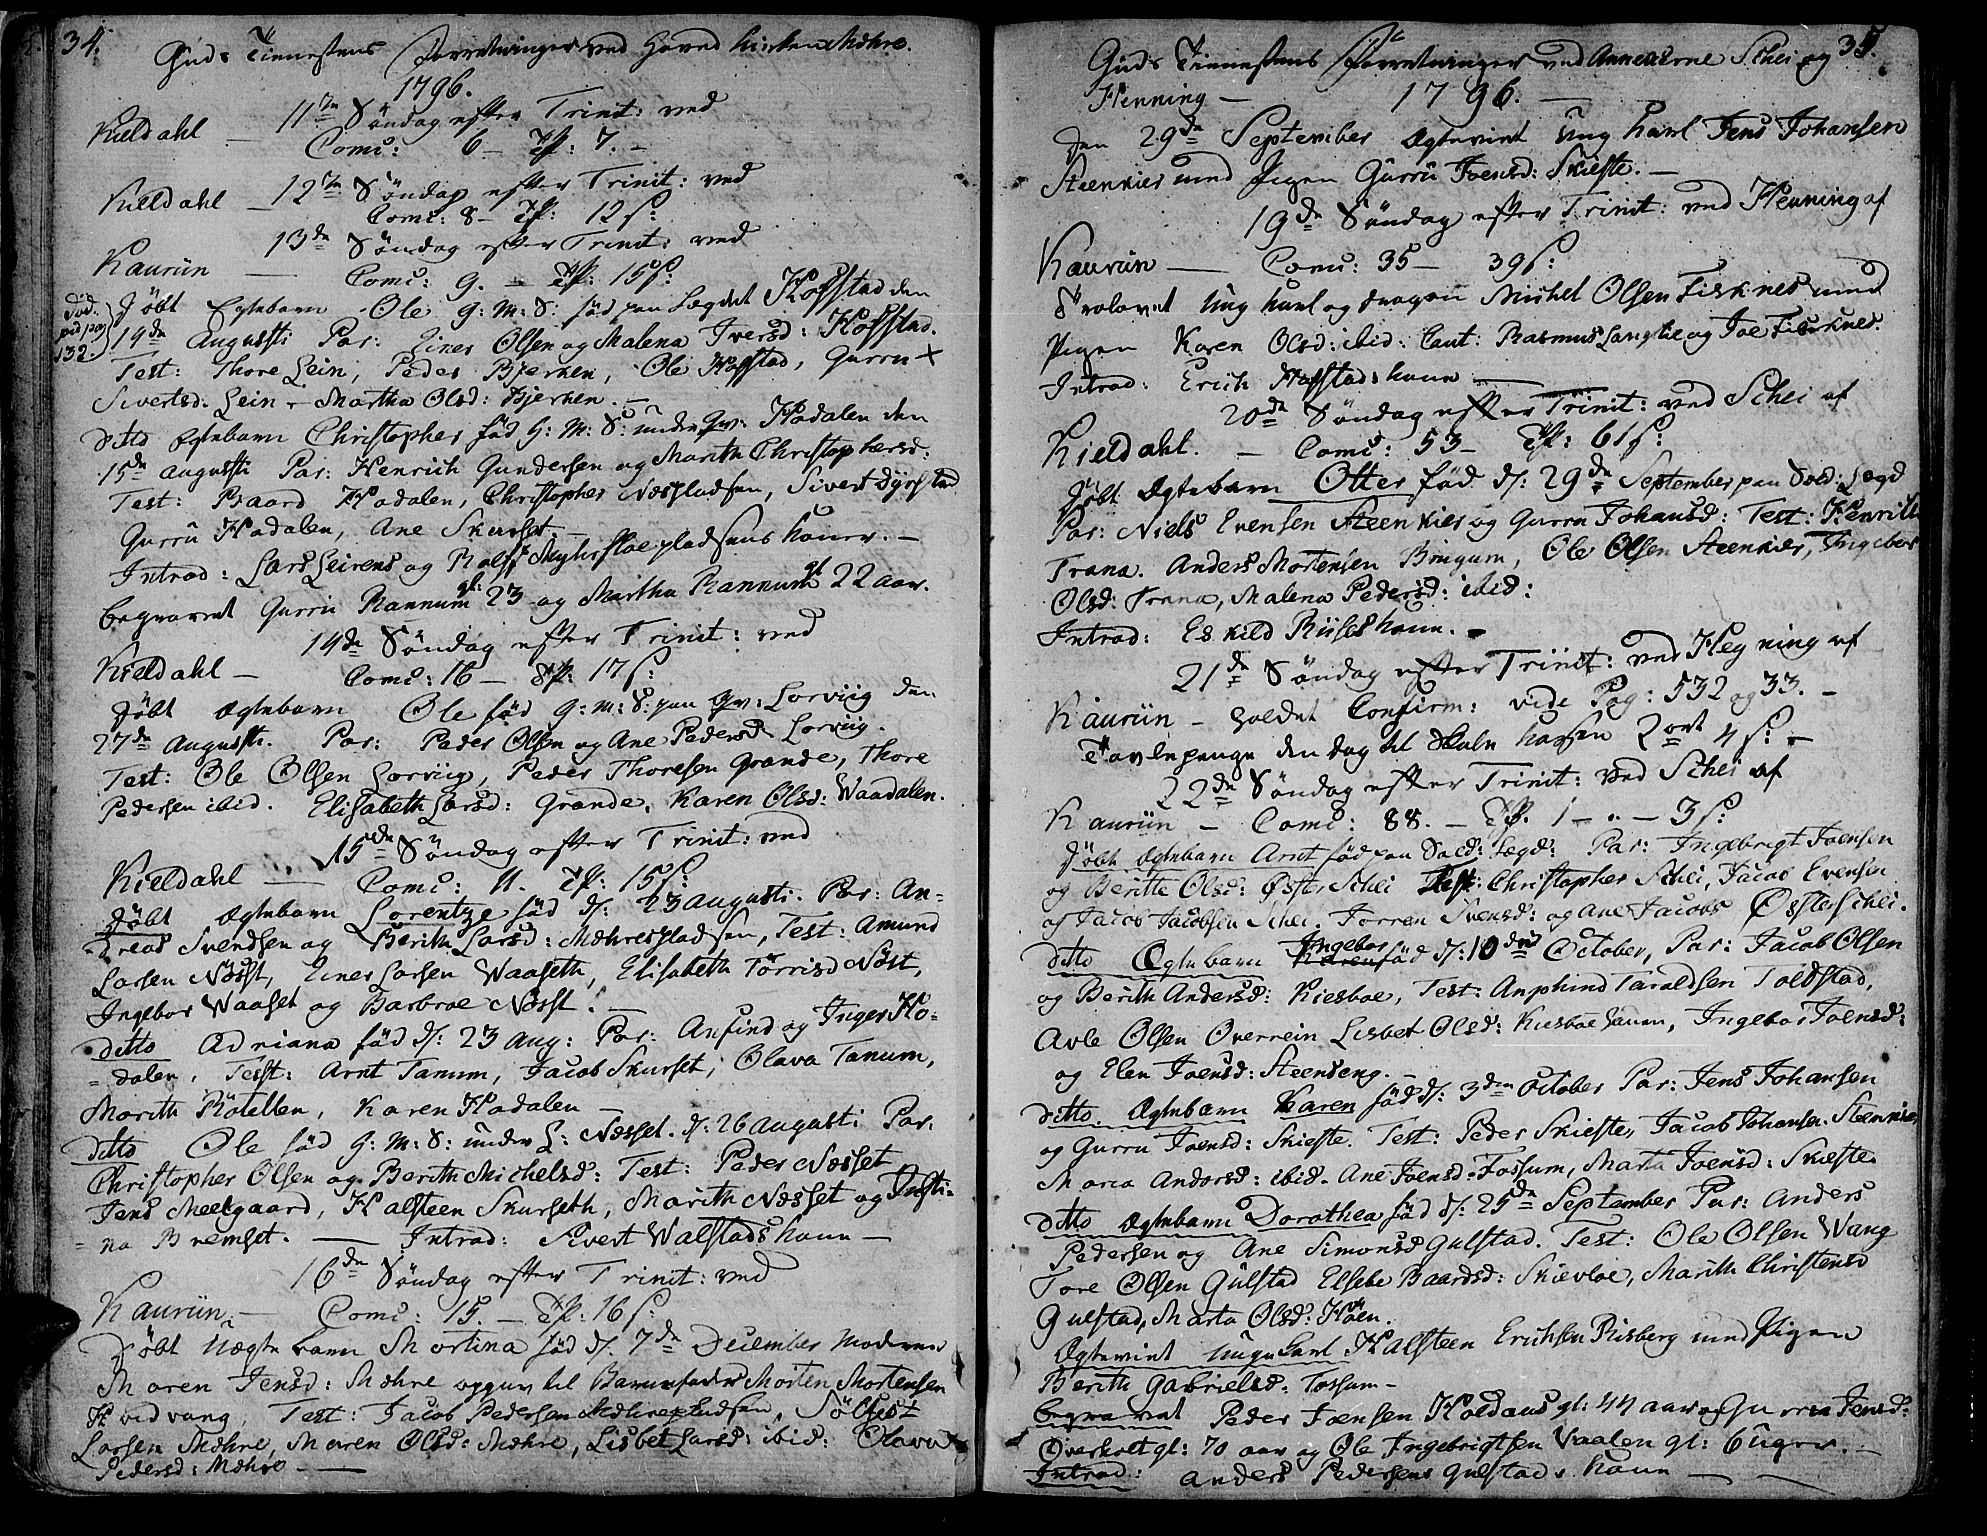 34.
Guds Tienestens Forretninger ved Hoved Kirken Mæhre.
1796.
11te Söndag efter Trinit: ved
Kieldahl — Comu: 6 — Tfl: 7. —
12te Söndag efter Trinit: ved
Kieldahl — Comu: 8 — Tfl: 12 s:
13de Söndag efter Trinit: ved
Kaurün — Comu: 9. — Tfl: 15 s:
Död. vid pag 132.
Döbt Egtebarn Ole g: m: S: föd paa Lægdet Hofstad den
19de Augusti Par: Einer Olsen og Malena Iversd: Hofstad.
Test: Thore Lein, Peder Bjerken, Ole Hofstad, Gurru
Sivertsd: Lein — Martha Olsd: Bjerken. —
ditto Egtebarn Christopher föd g: m: S: under Gv: Hadalen den
15de augusti Par: Henrich Gundersen og Marith Christophersd:
Test: Baard Hadalen, Christopher Næspladsen, Sivert Dyrstad
Gurru Hadalen, Ane Skurset —
Introd: Lars Leirens og Rolf Myhrsloepladsens koner. —
begravet Gurru Rannum gl: 23 og Martha Rannum gl 22 aar.
14de Söndag efter Trinit: ved
Kieldahl — Comu: 16 — Tfl: 17 s:
Döbt Egtebarn Ole föd g: m: S: paa Gv: Lorviig den
27de Augusti. Par: Peder Olsen og Ane Pedersd Lorviig.
Test: Ole Olsen Lorviig, Peder Thoresen Grande, Thore
Pedersen ibid. Elisabeth Larsd: Grande, Karen Olsd: Waadalen.
15de Söndag efter Trinit: ved
Kieldahl — Comu: 11. Tfl: 15 s:
Döbt Egtebarn Lorentze föd d: 23 augusti. Par: An-
dreas Svendsen og Berith Larsd: Mæhrespladsen, Test: Amund
Larsen Næsset, Einer Larsen Waaseth, Elisabeth Törrisd Nöst,
Ingebor Waaset og Barbroe Næsst. —
ditto Adriana föd d: 23 aug: Par: Anfind og Inger Ho-
dalen, Test: Arnt Tanum, Jacob Skurset, Olava Tanum,
Marith Rötellen, Karen Hadalen —
ditto Ole föd g: m: S: under L: Næsset. d: 26 augusti Par:
Christopher Olsen og Berith Michelsd: Test: Peder Næsset
Jens Meelgaard, Halsteen Skurseth, Marith Næsset og Justi-
na Bremset. — Introd: Sivert Walstads kone —
16de Söndag efter Trinit: ved
Kaurün — Comu: 15. — Tfl: 16 s:
Döbt Uægte barn Mortina föd d: 7de December Moderen
Maren Jensd: Mæhre opgav til Barnefader Morten Mortensen
Hvidvang, Test: Jacob Pedersen Mæhrepladsen, Söffest
Larsen Mæhre, Maren Olsd: Mæhre, Lisbet Larsd: ibid: Olava
Pedersd: Mæhre —
35.
Guds Tienestens Forretninger ved Annexerne Schei og
Henning — 1796. —
den 29de September Egteviet Ung karl Jens Johansen
Steenkier med Pigen Gurru Joensd: Skieste. —
19de Söndag efter Trinit: ved Henning af
Kaurün — Comu: 35 — 39 s:
Trolovet Ung karl og dragon Michel Olsen Fisknes med
Pigen Karen Olsd: ibid: Caut: Rasmus Langlie og Joe Fisknes.
Introd: Erich Hofstads kone —
20de Söndag efter Trinit: ved Schei af
Kieldahl. — Comu: 53 — Tfl: 61 s:
Döbt Egtebarn Otter föd d: 29de September paa Sold: Lægd
Par: Niels Evensen Steenkier og Gurru Johansd: Test: Henrik
Trana. Anders Mortensen Bingum, Ole Olsen Steenkier, Ingebor
Olsd: Trana, Malena Pedersd: ibid:
Introd: Eskild Riises kone. —
21de Söndag efter Trinit: ved Hegning af
Kaurün — holdet Confirm: vide Pag: 532 og 33. —
Tavlepenge den dag til Skole kassen 2 ort 4 s: —
22de Söndag efter Trinit: ved Schei af
Kaurün — Comu: 88. — Tfl. 1 — .. — 3 s:
Döbt Egtebarn Arnt föd paa Sold: Lægd: Par: Ingebrigt Joensen
og Beritte Olsd: Öster Schei Test: Christopher Schei, Jacob Evensen
og Jacob Jacobsen Schei. Torren Svensd: og Ane Jacobs Østerschei.
ditto Egtebarn Ingebor föd d: 10den October, Par: Jacob Olsen
og Berith Andersd: Kiesboe, Test: Anphind Taraldsen Toldstad,
Avle Olsen Overrein Lisbet Olsd: Kiesboe kone, Ingebor Joensd:
og Elen Joensd: Steenseng. —
ditto Egtebarn Karen föd d: 3den October Par: Jens Johansen
og Gurru Joensd: Skieste. Test: Peder Skieste, Jacob Johansen Steenkier,
Maria Andersd: ibid. Ane Joensd: Fossum, Marta Joensd: Skieste
ditto Egtebarn Dorothea föd d: 25de September Par: Anders
Pedersen og Ane Simonsd Gulstad. Test: Ole Olsen Wang
Tore Olsen Gulstad Elsebe Baardsd: Skievloe, Marith Christensd
Gulstad, Marta Olsd: Höen.
Egteviet Unge karl Halsteen Erichsen Risberg med Pigen
Berith Gabrielsd: Fossum —
Begravet Peder Joensen Koldaas gl: 44 aar og Gurru Jensd:
Overholt gl: 70 aar og Ole Ingebrigtsen Vaalen gl: 6 uger. —
Introd: Anders Pedersens Gulstads kone —